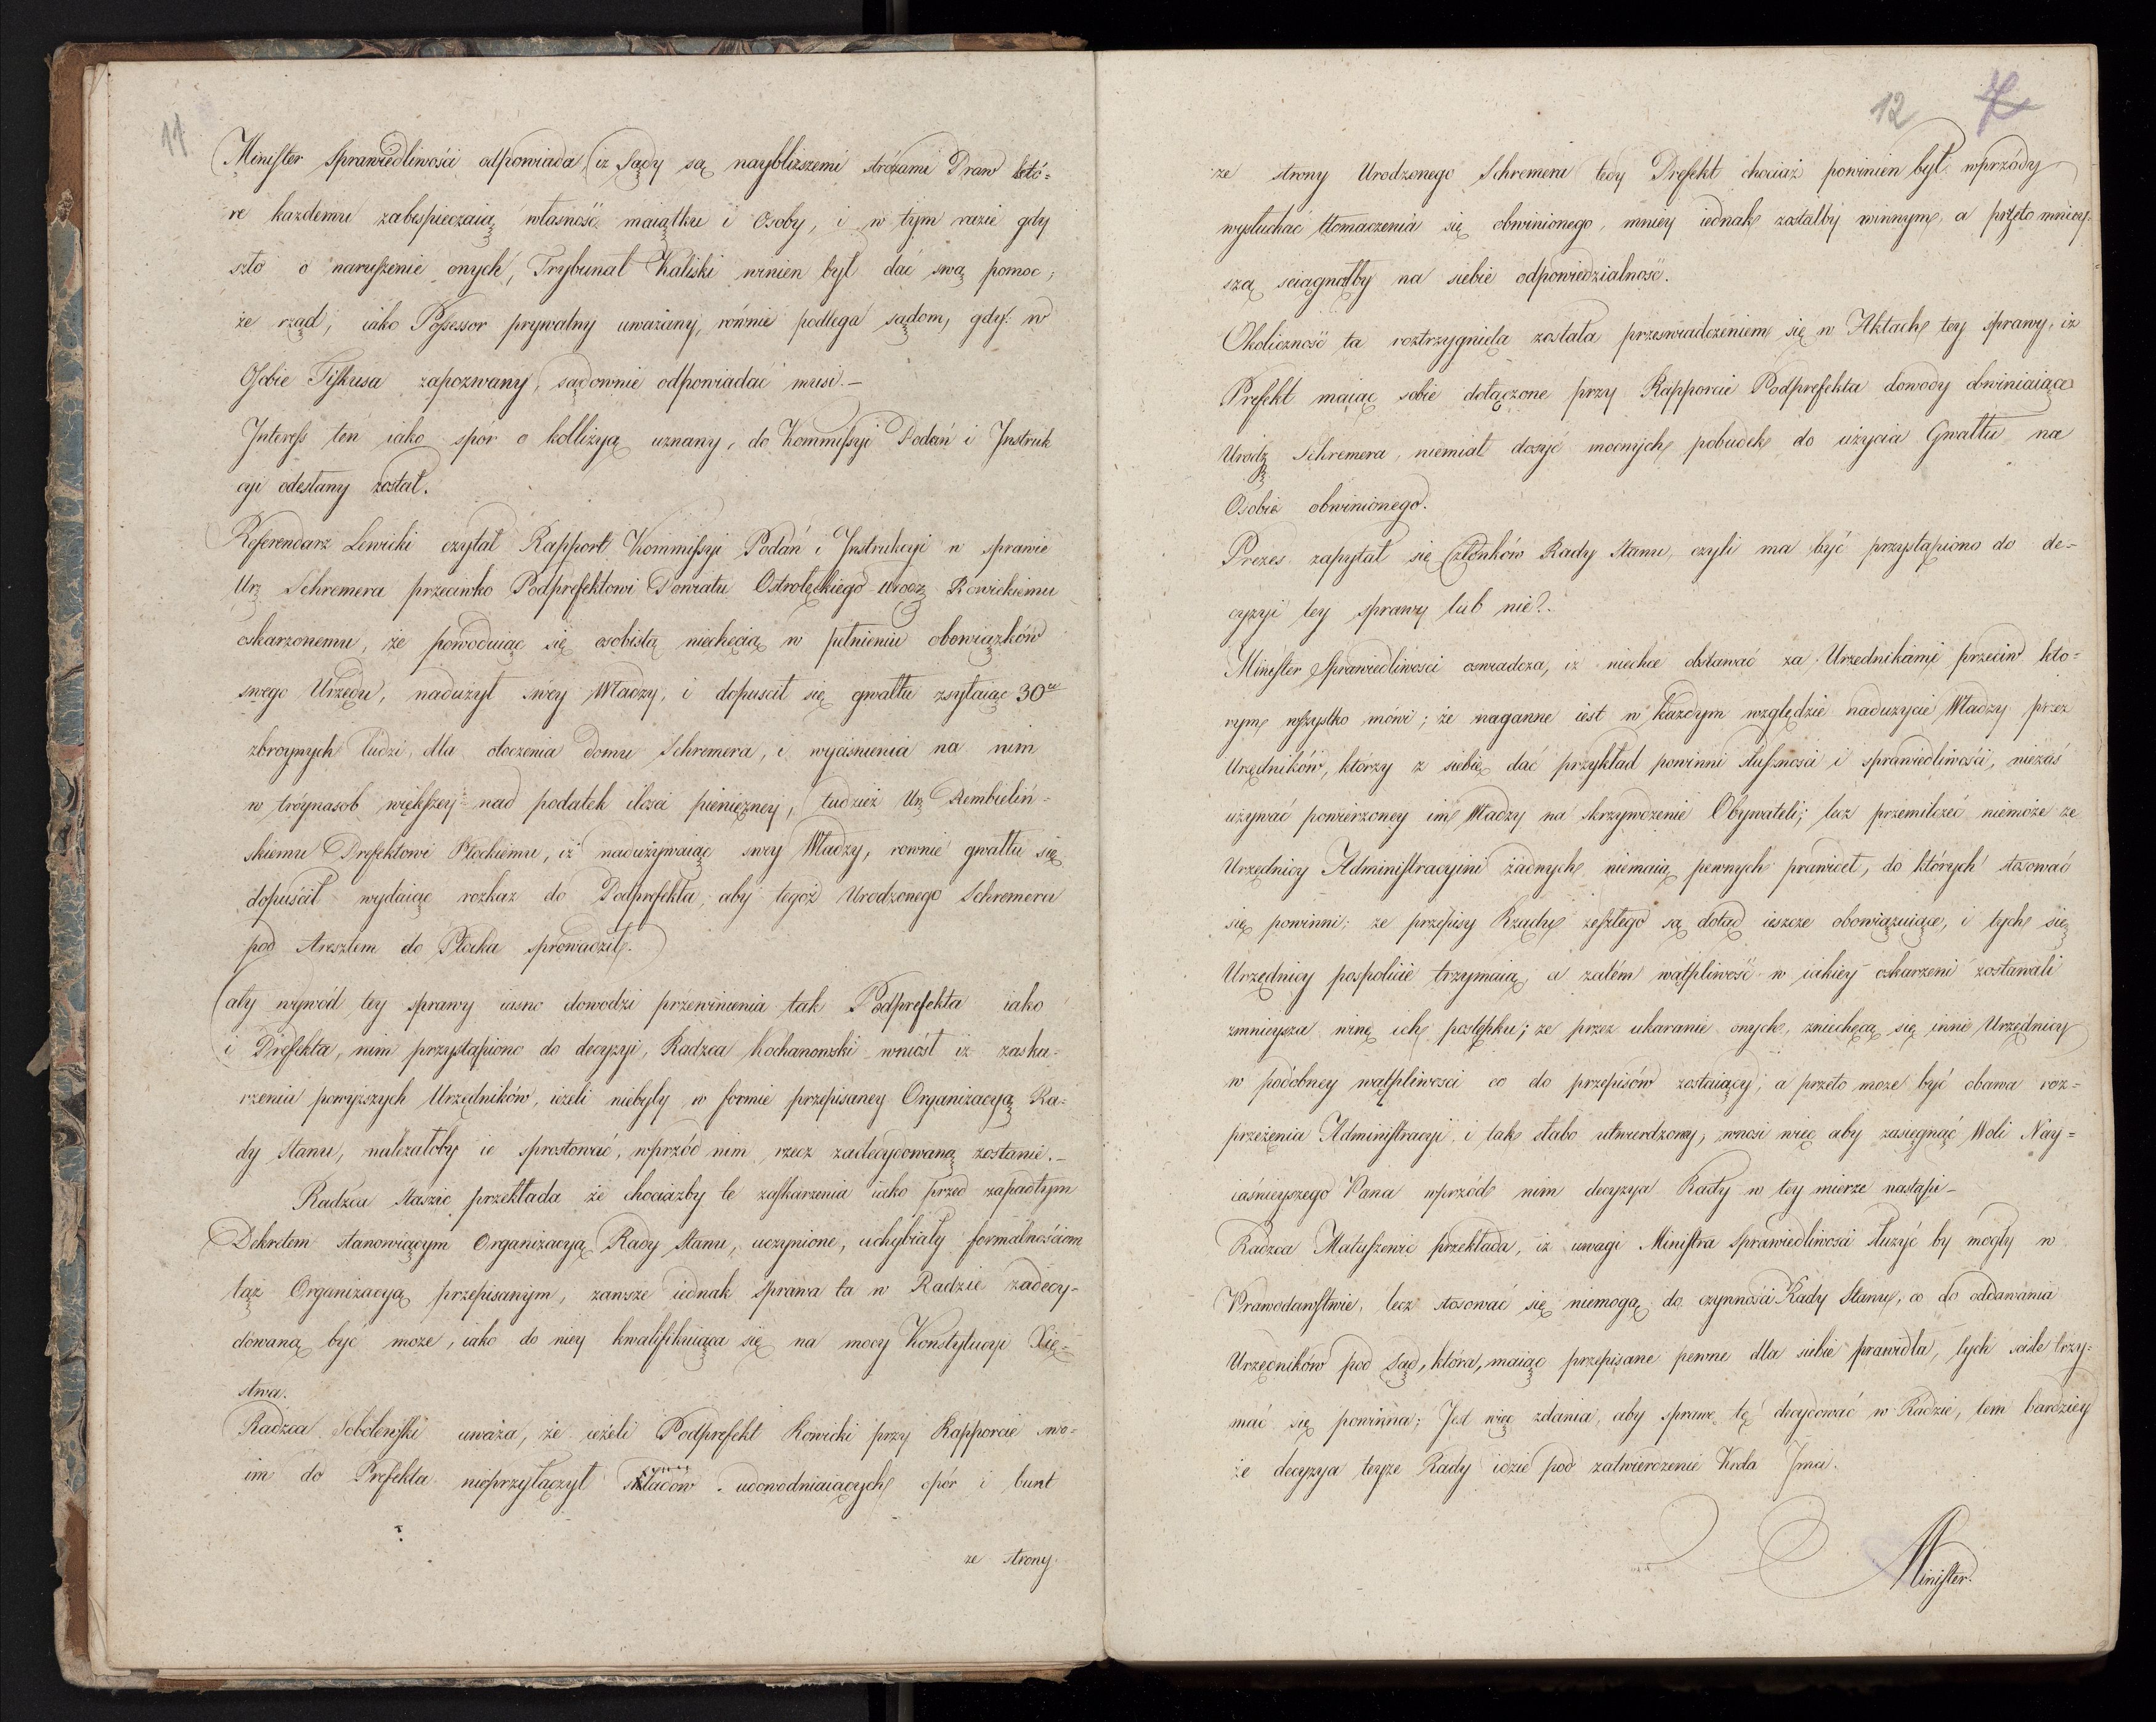 11
Minister Sprawiedliwości odpowiada, iz Sądy są naybliższemi stróżami Praw któ-
re kazdemu zabespieczaią własność maiątku i Osoby, i w tym razie gdy
szło o naruszenie onych, Trybunał Kaliski winien był dać swą pomoc;
że rząd, iako Possessor prywatny uważany, równie podlega sądom, gdy w
Osobie Fiskusa zapozwany, sądownie odpowiadać musi.—
Interess ten iako spór o kollizyą uznany, do Kommissyi Podań i Instruk
cyi odesłany został.
Referendarz Lewicki czytał Rapport Kommissyi Podań i Instrukcyi w sprawie
Ur. Schremera przeciwko Podprefektowi Powiatu Ostrołęckiego Urodz. Rowickiemu
oskarzonemu, że powoduiąc się osobistą niechęcią w pełnieniu obowiązków
swego Urzędu, nadużył swey Władzy, i dopuscił się gwałtu zsyłaiąc 30tu
zbroynych ludzi, dla otoczenia domu Schremera, i wyciśnienia na nim
w tróynasob większey nad podatek ilosci pienięzney, tudzież Ur. Rembieliń-
skiemu Prefektowi Płockiemu, iż nadużywaiąc swey Władzy, rownie gwałtu się
dopuścił wydaiąc rozkaz do Podprefekta, aby tegoż Urodzonego Schremera
pod Aresztem do Płocka sprowadził.
Cały wywód tey sprawy iasno dowodzi przewinienia tak Podprefekta iako
i Prefekta, nim przystąpiono do decyzyi, Radzca Kochanowski wniósł iz zaska-
rzenia powyższych Urzędników, iezeli niebyły w formie przepisaney Organizacyą Ra-
dy Stanu, należałoby ie sprostować, wprzód nim rzecz zadecydowaną zostanie.—
Radzca Staszic przekłada że chociażby te zaskarzenia iako przed zapadłym
Dekretem stanowiącym Organizacyą Rady Stanu, uczynione, uchybiały formalnościom
tąż Organizacyą przepisanym, zawsze iednak sprawa ta w Radzie zadecy-
dowaną być może, iako do niey kwalifikuiąca się na mocy Konstytucyi Xię-
stwa.
Radzca Sobolewski uważa, że ieżeli Podprefekt Rowicki przy Rapporcie swo-
im do Prefekta nieprzyłączył śladów udowodniaiących opór i bunt
ze strony
12
7
ze strony Urodzonego Schremera tedy Prefekt chociaż powinien był wprzódy
wysłuchać tłomaczenia się obwinionego, mniey iednak zostałby winnym, a przeto mniey-
szą sciągnąłby na siebie odpowiedzialność.
Okoliczność ta roztrzygnięta została przeswiadczeniem się w Aktach tey sprawy, iz
Prefekt maiąc sobie dołączone przy Rapporcie Podprefekta dowody obwiniaiące
Urodz. Schremera, niemiał dosyć mocnych pobudek do użycia Gwałtu na
Osobie obwinionego.
Prezes zapytał się Członków Rady Stanu, czyli ma być przystąpiono do de-
cyzyi tey sprawy lub nie?
Minister Sprawiedliwosci oswiadcza, iz niechce obstawać za Urzednikami przeciw któ-
rym wszystko mówi; że naganne iest w każdym względzie naduzycie Władzy przez
Urzędników, którzy z siebie dać przykład powinni słuszności i sprawiedliwości, niezaś
używać powierzoney im Władzy na skrzywdzenie Obywateli; lecz przemilczeć niemoże ze
Urzędnicy Administracyini żadnych niemaią pewnych prawideł, do których stosować
się powinni; ze przepisy Rządu zeszłego są dotąd ieszcze obowiązuiące, i tych się
Urzędnicy pospolicie trzymaią, a zatém wątpliwość w iakiey oskarzeni zostawali
zmnieysza winę ich postępku; ze przez ukaranie onych, zniechęcą się inni Urzędnicy
w podobney wątpliwosci co do przepisów zostaiący; a przeto moze być obawa roz-
przężenia Administracyi i tak słabo utwierdzoney; wnosi więc aby zasięgnąć Woli Nay-
iaśnieyszego Pana wprzód nim decyzya Rady w tey mierze nastąpi—
Radzca Matuszewic przekłada, iż uwagi Ministra Sprawiedliwosci służyć by mogły w
Prawodawstwie, lecz stosować się niemogą do czynności Rady Stanu, co do oddawania
Urzędników pod Sąd, która, maiąc przepisane pewne dla siebie prawidła, tych scisle trzy-
mać się powinna; Jest więc zdania, aby sprawę tę decydować w Radzie, tem bardziey
że decyzya teyze Rady idzie pod zatwierdzenie Króla Jmci.
Minister